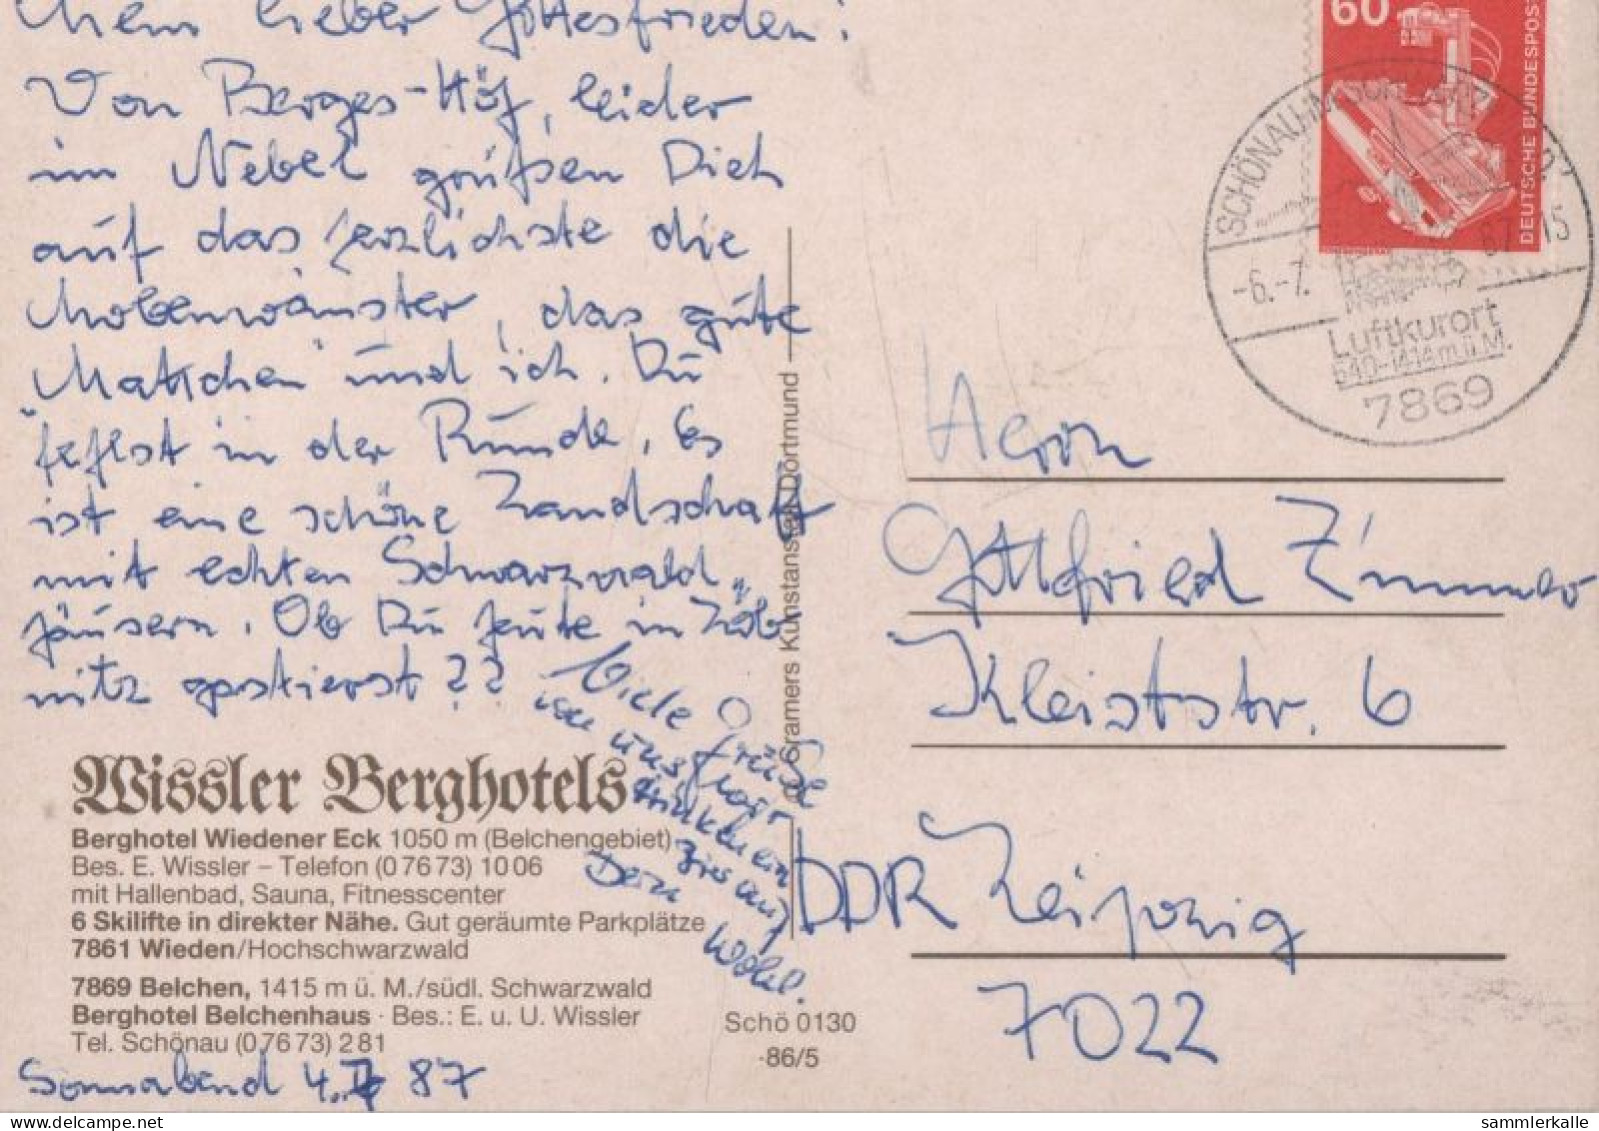 Mein lieber Gottesfrieden!
Von Berges-Höh, leider
im Nebel grüßen Dich
auf das herzlichste die
das gute
und ich. Du
fehlst in der Runde. Es
ist eine schöne Landschaft
mit echten Schwarzwald-
häusern. Ob Du heute in Löb-
nitz gastierst??
Viele Grüße
von uns
trinken ein
Bier auf
Dein
Wohl.
Wissler Berghotels
Berghotel Wiedener Eck 1050 m (Belchengebiet)
Bes. E. Wissler – Telefon (0 76 73) 10 06
mit Hallenbad, Sauna, Fitnesscenter
6 Skilifte in direkter Nähe. Gut geräumte Parkplätze
7861 Wieden/Hochschwarzwald
7869 Belchen, 1415 m ü. M./südl. Schwarzwald
Berghotel Belchenhaus · Bes.: E. u. U. Wissler
Tel. Schönau (0 76 73) 2 81
Sonnabend 4. 7. 87
Cramers Kunstanstalt Dortmund
Schö 0130
-86/5
60
DEUTSCHE BUNDESPOST
SCHÖNAU IM SCHWARZW
-6.-7. 87 15
Luftkurort
540-1414 m ü. M.
7869
Herrn
Gottfried Zimmer
Kleiststr. 6
DDR Leipzig
7022
www.delcampe.net
sammlerkalle